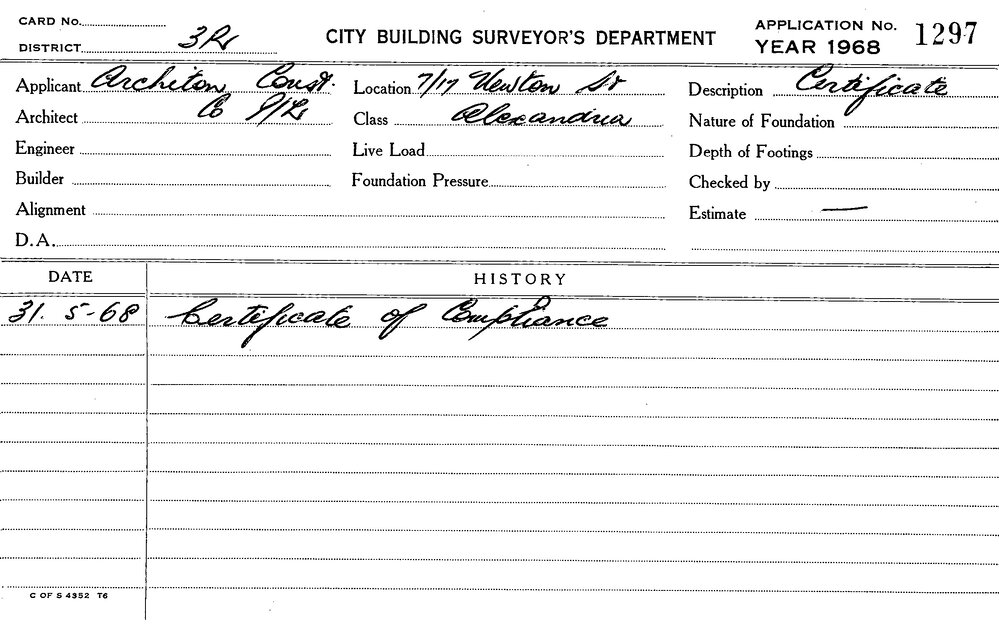 CARD No.
DISTRICT 3Rs
CITY BUILDING SURVEYOR'S DEPARTMENT
APPLICATION No. 1297
YEAR 1968
Applicant Architon Const. Location 7/17 Newton St Description Certificate
Architect Co P/L Class Alexandria Nature of Foundation
Engineer Live Load Depth of Footings
Builder Foundation Pressure Checked by
Alignment Estimate —
D.A.
DATE HISTORY
31. 5-68 Certificate of Compliance
C OF S 4352 T6